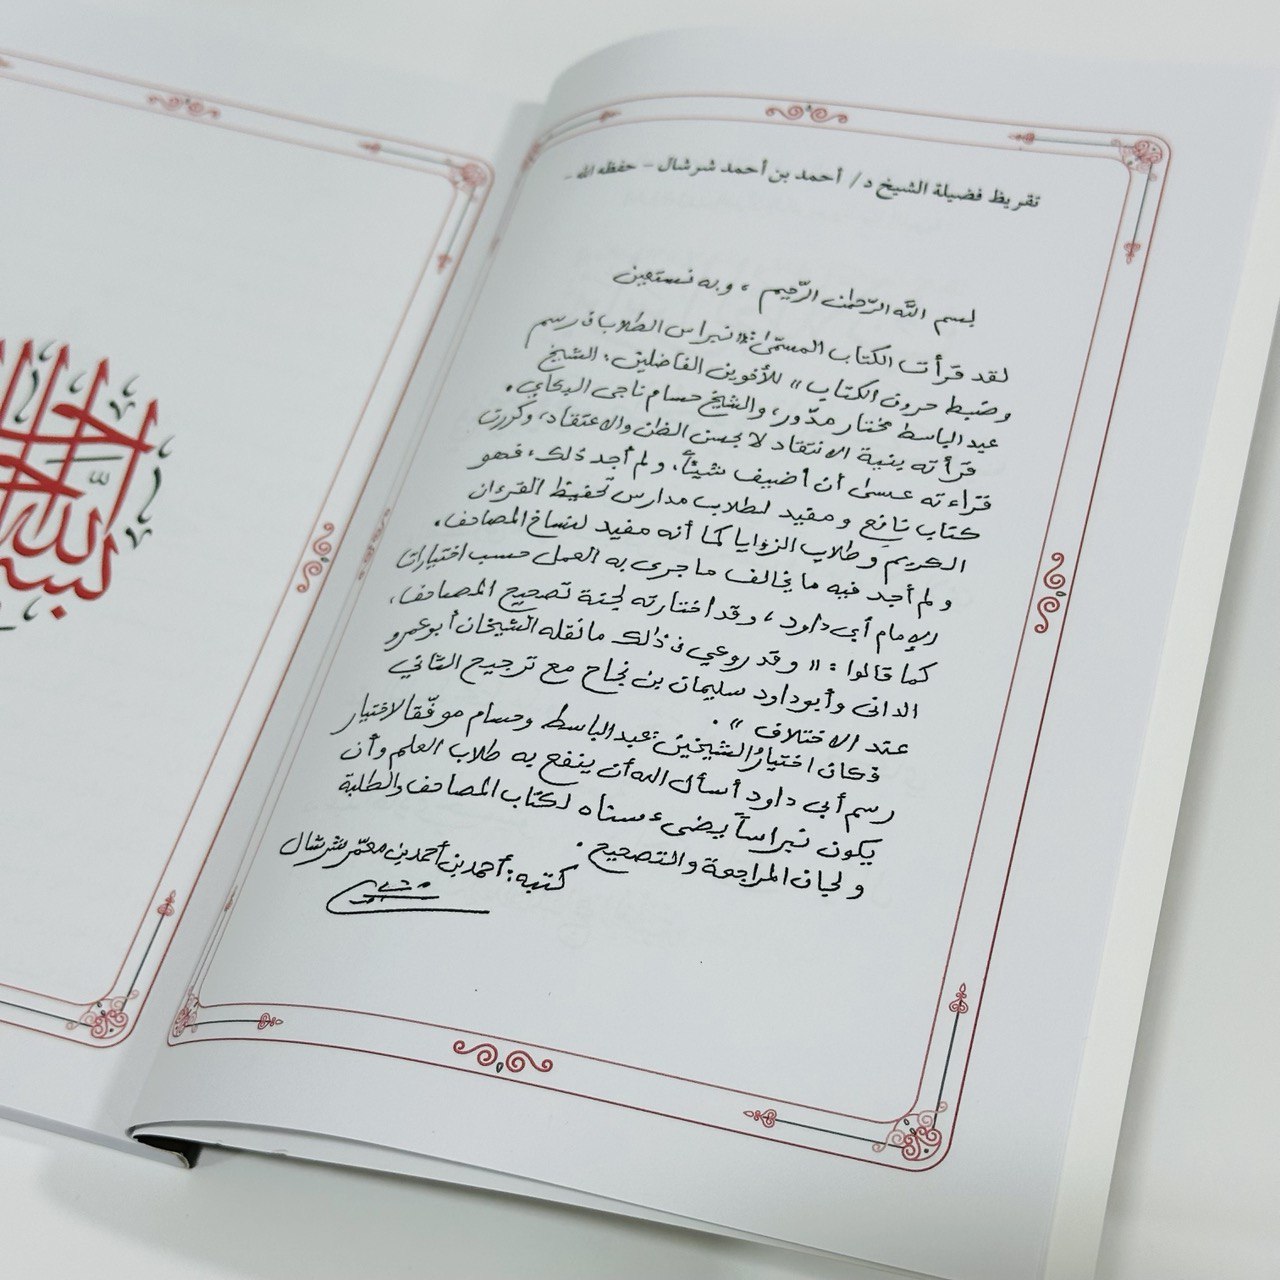 تقريظ فضيلة الشيخ د/ أحمد بن أحمد شرشال - حفظه الله -
بسم الله الرّحمٰن الرّحيم ، وبه نستعين
لقد قرأت الكتاب المسمّىٰ: «نبراس الطلاب في رسم
وضبط حروف الكتاب» للأخوين الفاضلين: الشيخ
عبد الباسط مختار مدّور، والشيخ حسام ناجى
قرأته بنية الانتقاد لا بحسن الظن والاعتقاد، وكررت
قراءته عسىٰ أن أضيف شيئاً، ولم أجد ذلك، فهو
كتاب نافع ومفيد لطلاب مدارس تحفيظ القرءان
الكريم وطلاب الزوايا كما أنه مفيد لنساخ المصاحف.
ولم أجد فيه ما يخالف ما جرى به العمل حسب اختيارات
الإمام أبي داود، وقد اختارته لجنة تصحيح المصاحف،
كما قالوا: «وقد روعي في ذٰلك ما نقله الشيخان أبو عمرو
الدانى وأبو داود سليمان بن نجاح مع ترجيح الثاني
عند الاختلاف».
فكان اختيارُ الشيخين: عبد الباسط وحسام موفّقا لاختيار
رسم أبي داود أسأل الله أن ينفع به طلاب العلم وأن
يكون نبراساً يضيء سناه لكتاب المصاحف والطلبة
ولجان المراجعة والتصحيح.
كتبه: أحمد بن أحمد بن معمّر شرشال